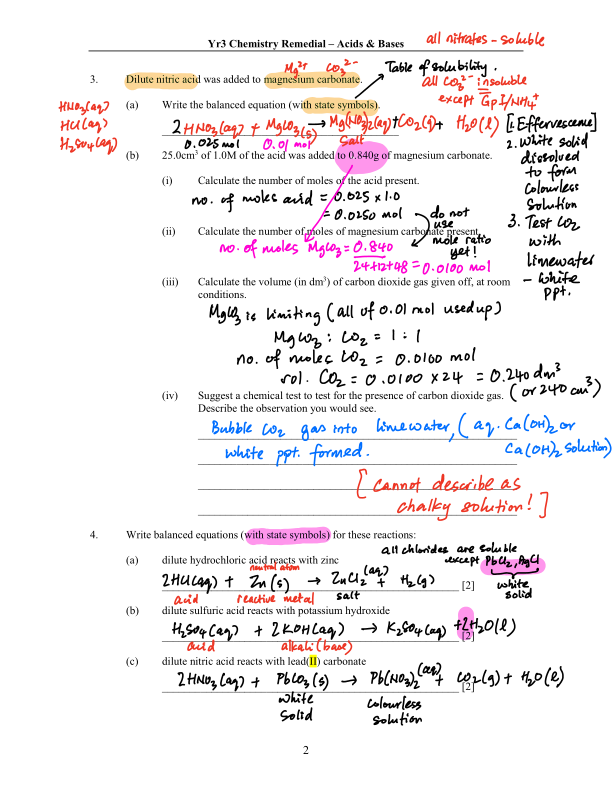 Yr3 Chemistry Remedial – Acids & Bases
all nitrates - soluble
Mg²⁺ CO₃²⁻
Table of solubility.
3. Dilute nitric acid was added to magnesium carbonate.
all CO₃²⁻ insoluble
except Gp I/NH₄⁺
HNO₃(aq)
HCl(aq)
H₂SO₄(aq)
(a) Write the balanced equation (with state symbols).
2HNO₃(aq) + MgCO₃(s) → Mg(NO₃)₂(aq) + CO₂(g) + H₂O(l)
0.025 mol 0.01 mol salt
[1. Effervescence]
2. White solid
dissolved
to form
colourless
solution
3. Test CO₂
with
limewater
- white
ppt.
(b) 25.0cm³ of 1.0M of the acid was added to 0.840g of magnesium carbonate.
(i) Calculate the number of moles of the acid present.
no. of moles acid = 0.025 x 1.0
= 0.0250 mol
do not
use
mole ratio
yet!
(ii) Calculate the number of moles of magnesium carbonate present.
no. of moles MgCO₃ = 0.840
24+12+48 = 0.0100 mol
(iii) Calculate the volume (in dm³) of carbon dioxide gas given off, at room
conditions.
MgCO₃ is limiting (all of 0.01 mol used up)
MgCO₃ : CO₂ = 1 : 1
no. of moles CO₂ = 0.0100 mol
vol. CO₂ = 0.0100 x 24 = 0.240 dm³
(or 240 cm³)
(iv) Suggest a chemical test to test for the presence of carbon dioxide gas.
Describe the observation you would see.
Bubble CO₂ gas into limewater, (aq. Ca(OH)₂ or
white ppt. formed. Ca(OH)₂ solution)
[Cannot describe as
chalky solution!]
4. Write balanced equations (with state symbols) for these reactions:
all chlorides are soluble
except PbCl₂, AgCl
white
solid
(a) dilute hydrochloric acid reacts with zinc
neutral atom
2HCl(aq) + Zn(s) → ZnCl₂(aq) + H₂(g) [2]
acid reactive metal salt
(b) dilute sulfuric acid reacts with potassium hydroxide
H₂SO₄(aq) + 2KOH(aq) → K₂SO₄(aq) + 2H₂O(l) [2]
acid alkali (base)
(c) dilute nitric acid reacts with lead(II) carbonate
2HNO₃(aq) + PbCO₃(s) → Pb(NO₃)₂(aq) + CO₂(g) + H₂O(l) [2]
white colourless
solid solution
2